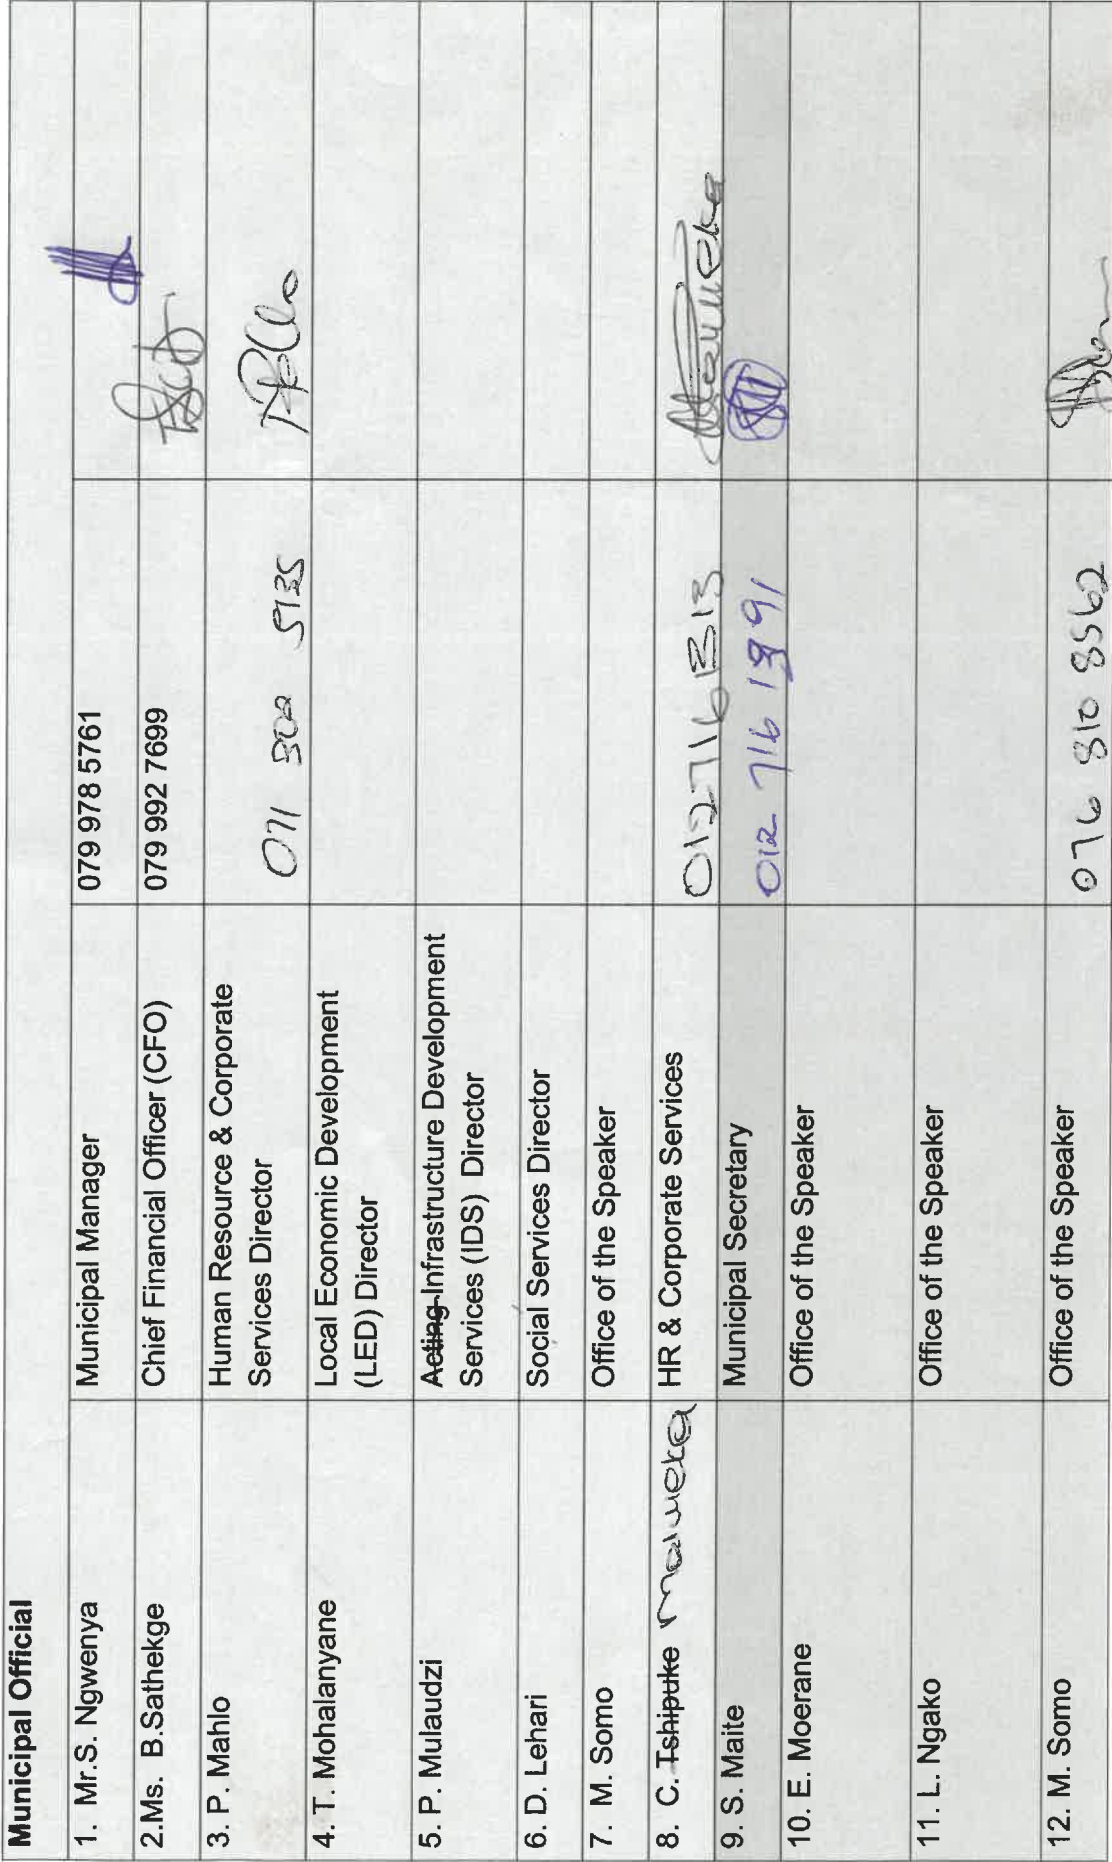 Municipal Official
1. Mr.S. Ngwenya Municipal Manager 079 978 5761
2.Ms. B.Sathekge Chief Financial Officer (CFO) 079 992 7699
3. P. Mahlo Human Resource & Corporate
Services Director 071 302 5135
4. T. Mohalanyane Local Economic Development
(LED) Director
5. P. Mulaudzi Acting Infrastructure Development
Services (IDS) Director
6. D. Lehari Social Services Director
7. M. Somo Office of the Speaker
8. C. Tshipuke HR & Corporate Services
9. S. Maite Municipal Secretary 012 716
10. E. Moerane Office of the Speaker
11. L. Ngako Office of the Speaker
12. M. Somo Office of the Speaker 076 810 8562